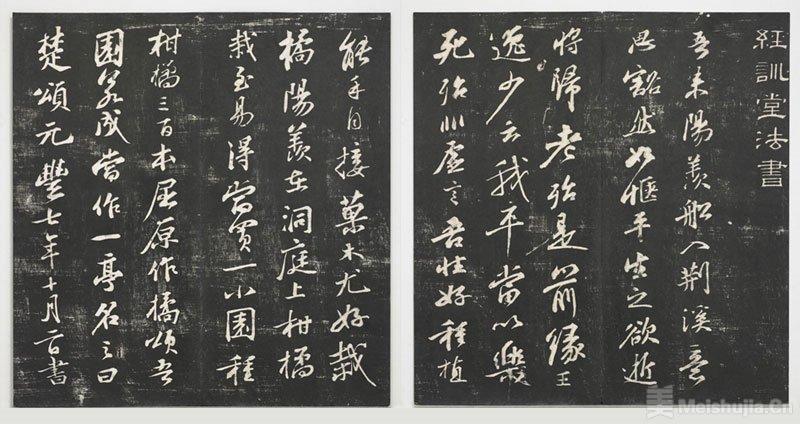 經訓堂法書
吾來陽羨船入荊溪意
思豁然如愜平生之欲逝
將歸老殆是前緣王
逸少云我卒當以樂
死殆非虛言吾性好種植
能手自接菓木尤好栽
橘陽羨在洞庭上柑橘
栽至易得當買一小園種
柑橘三百本屈原作橘頌吾
園若成當作一亭名之曰
楚頌元豐七年十月二日書
美 Meishujia.Cn